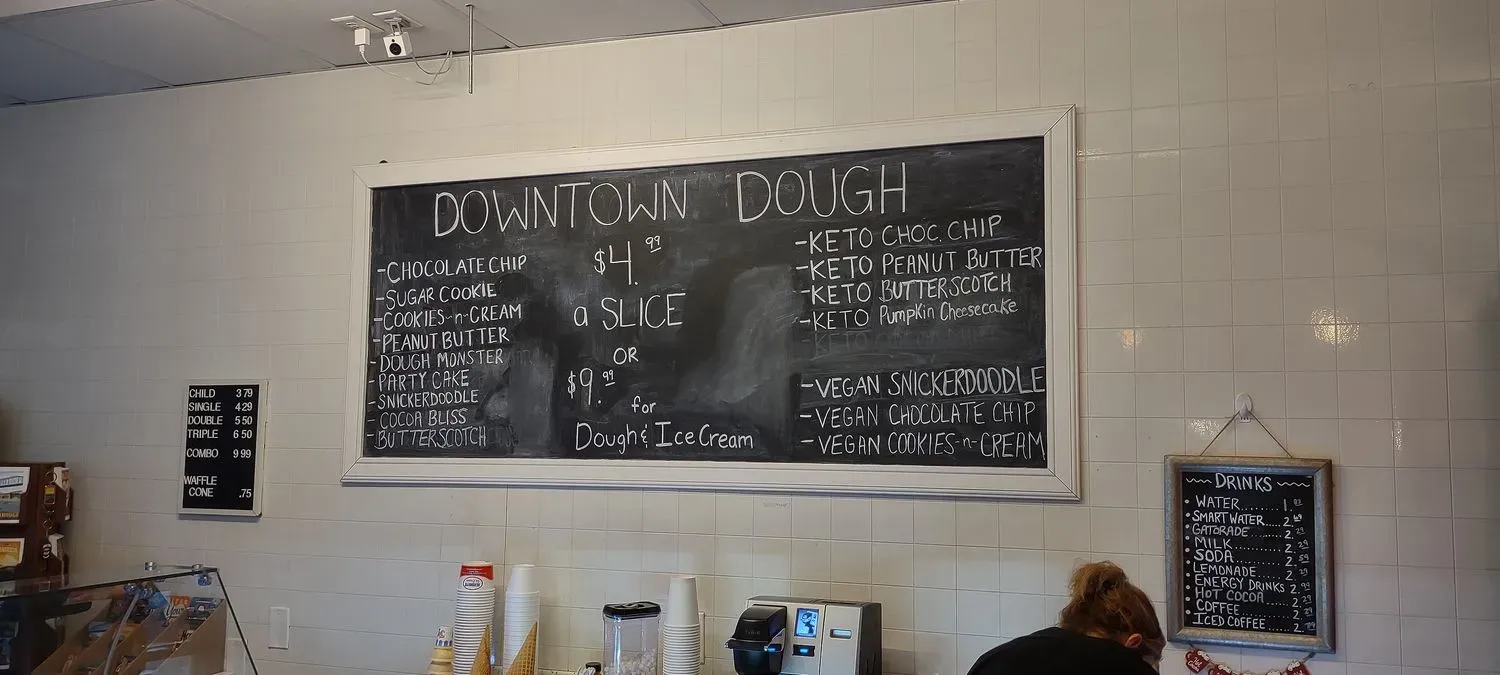 DOWNTOWN DOUGH
-CHOCOLATE CHIP
-SUGAR COOKIE
-COOKIES-n-CREAM
-PEANUT BUTTER
-DOUGH MONSTER
-PARTY CAKE
-SNICKERDOODLE
-COCOA BLISS
-BUTTERSCOTCH
$4.99
a SLICE
OR
$9.99
for
Dough & Ice Cream
-KETO CHOC. CHIP
-KETO PEANUT BUTTER
-KETO BUTTERSCOTCH
-KETO Pumpkin Cheesecake
-VEGAN SNICKERDOODLE
-VEGAN CHOCOLATE CHIP
-VEGAN COOKIES-n-CREAM
CHILD 3 79
SINGLE 4 29
DOUBLE 5 50
TRIPLE 6 50
COMBO 9 99
WAFFLE
CONE .75
DRINKS
WATER
SMART WATER
GATORADE
MILK
SODA
LEMONADE
ENERGY DRINKS
HOT COCOA
COFFEE
ICED COFFEE